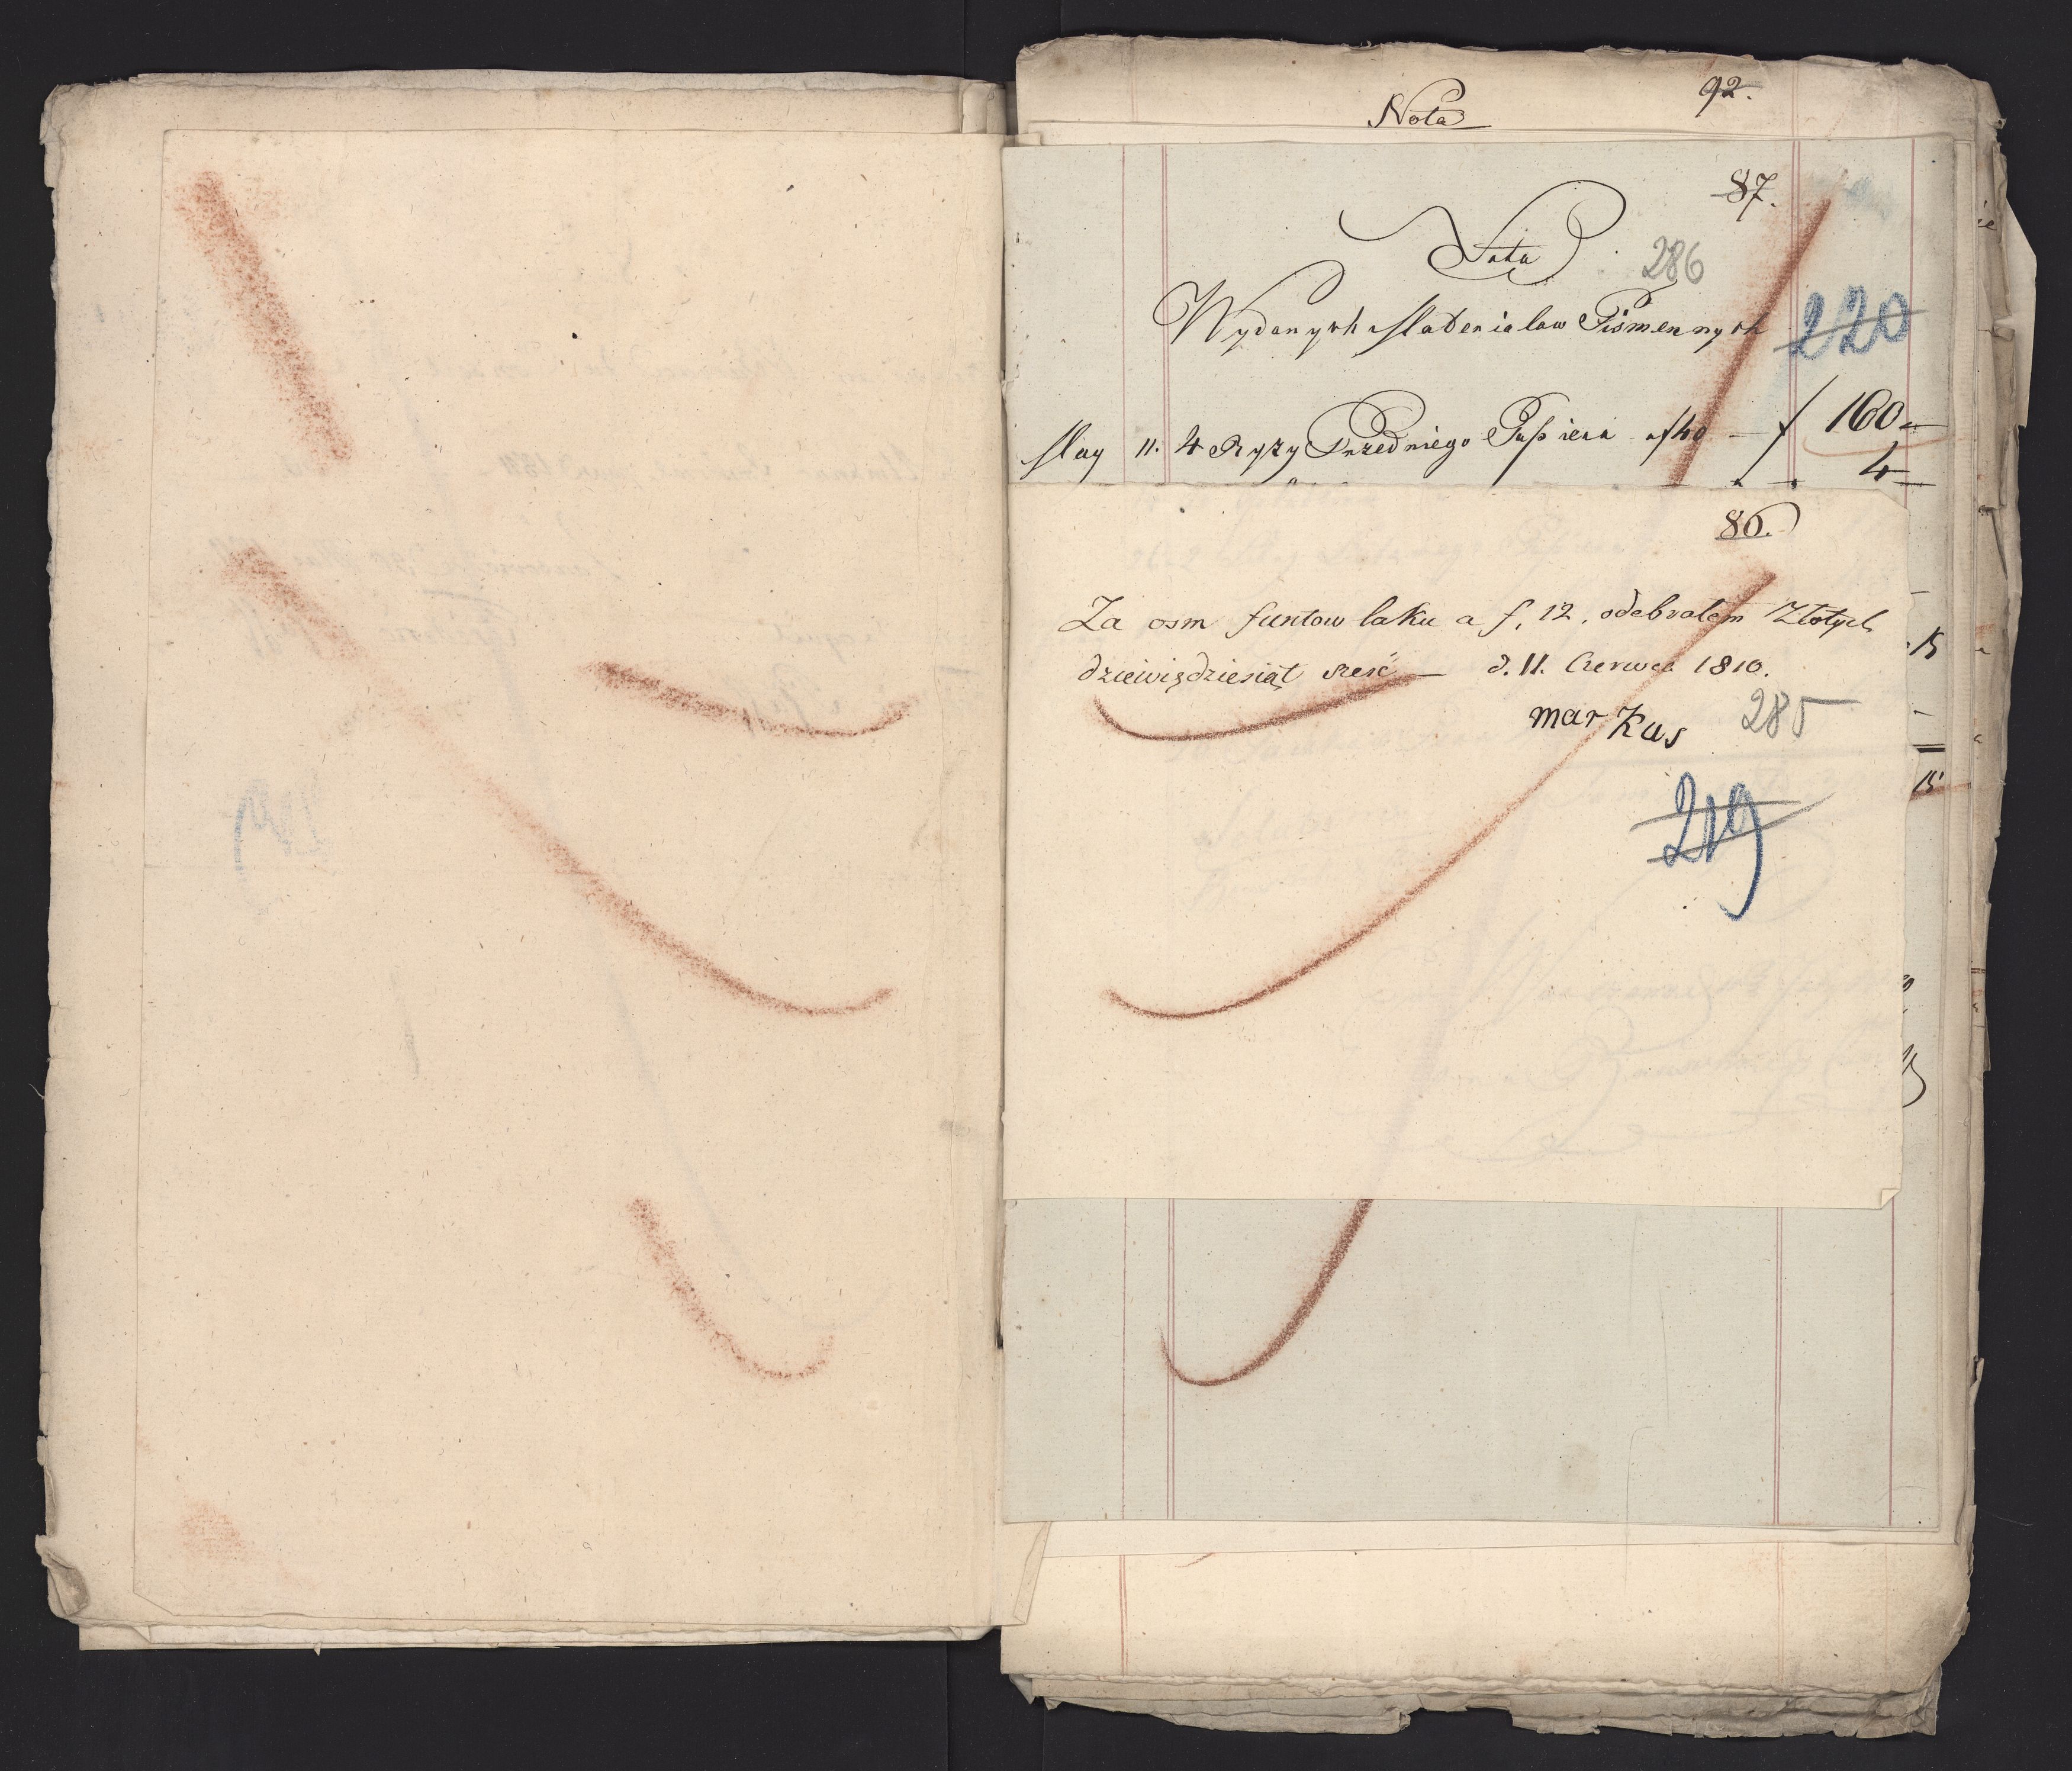 92.
Nota
87.
Nota
286
Wydanych Materialow Pismennych
220
May 11. 4 Ryzy Przedniego Papieru af40 — f 160 —
4 —
86.
Za osm funtow laku a f. 12. odebralem Złotych
dziewiędziesiąt sześć — d. 11. Czerwca 1810.
markus
285
219
15
15